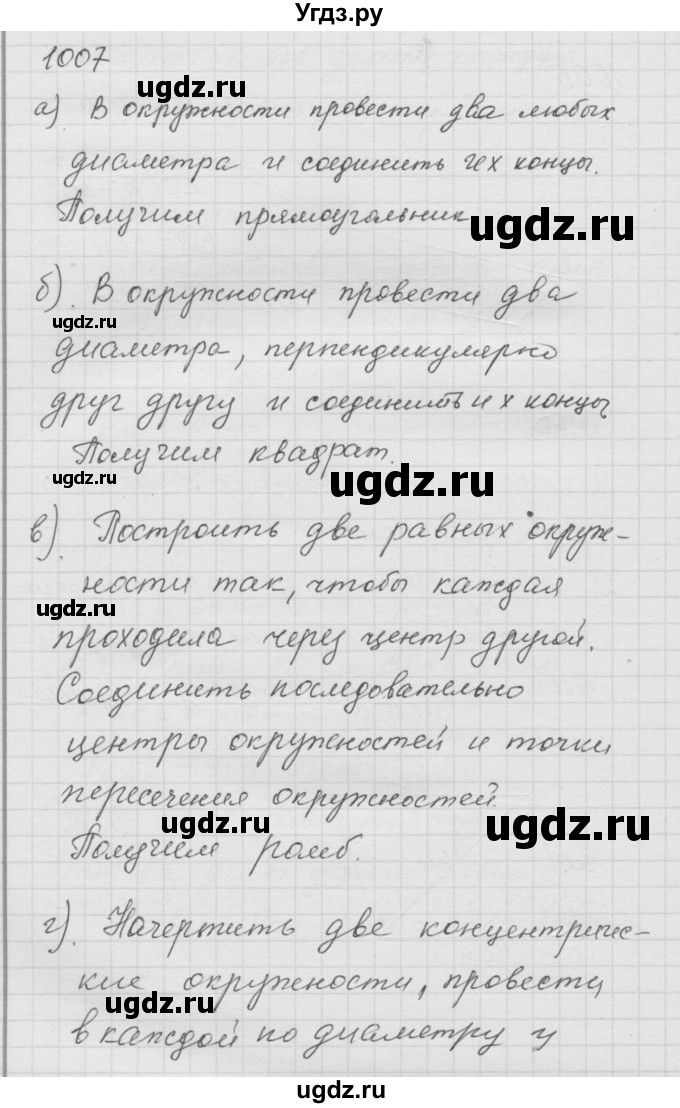 Угдз.ру
1007
ugdz.ru
а) В окружности провести два любых
диаметра и соединить их концы.
Получим прямоугольник
ugdz.ru
б). В окружности провести два
ugdz.ru
диаметра, перпендикулярно
друг другу и соединить их концы
Получим квадрат.
ugdz.ru
ugdz.ru
в). Построить две равных окруж-
ности так, чтобы каждая
ugdz.ru
проходила через центр другой.
Соединить последовательно
центры окружностей и точки
пересечения окружностей.
ugdz.ru
ugdz.ru
Получим ромб.
г). Начертить две концентричес-
кие окружности, провести
ugdz.ru
в каждой по диаметру и
ugdz.ru